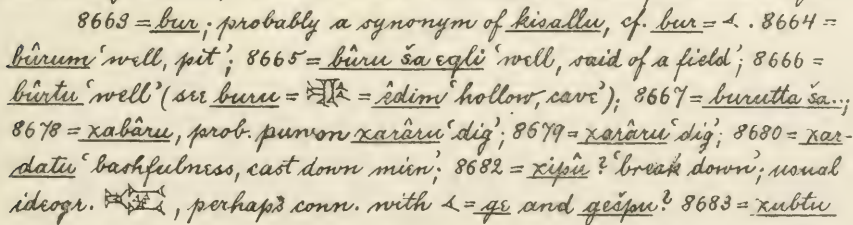 8663 = bur; probably a synonym of kisallu, cf. bur = 𒌋. 8664 =
bûrum 'well, pit'; 8665 = bûru ša eqli 'well, said of a field'; 8666 =
bûrtu 'well' (see buru = = êdim 'hollow, cave'); 8667 = burutta ša...;
8678 = xabâru, prob. pun on xarâru 'dig'; 8679 = xarâru 'dig'; 8680 = xar-
datu 'bashfulness, cast down mien'; 8682 = xipû? 'break down'; usual
ideogr. , perhaps conn. with 𒌋 = ge and gešpu? 8683 = xubtu